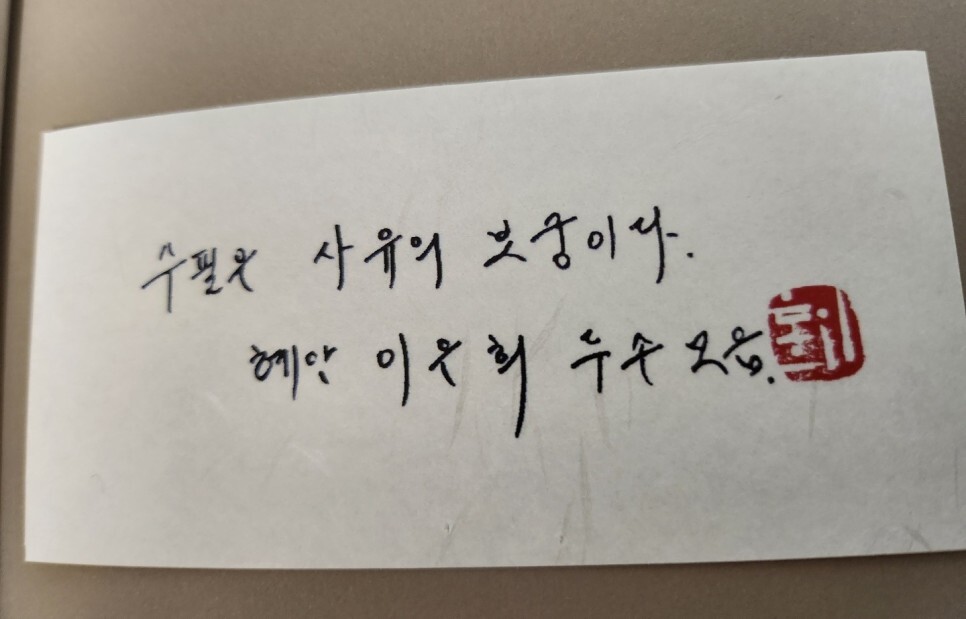 수필은 사유의 보궁이다.
혜안 이은희 두손 모음.